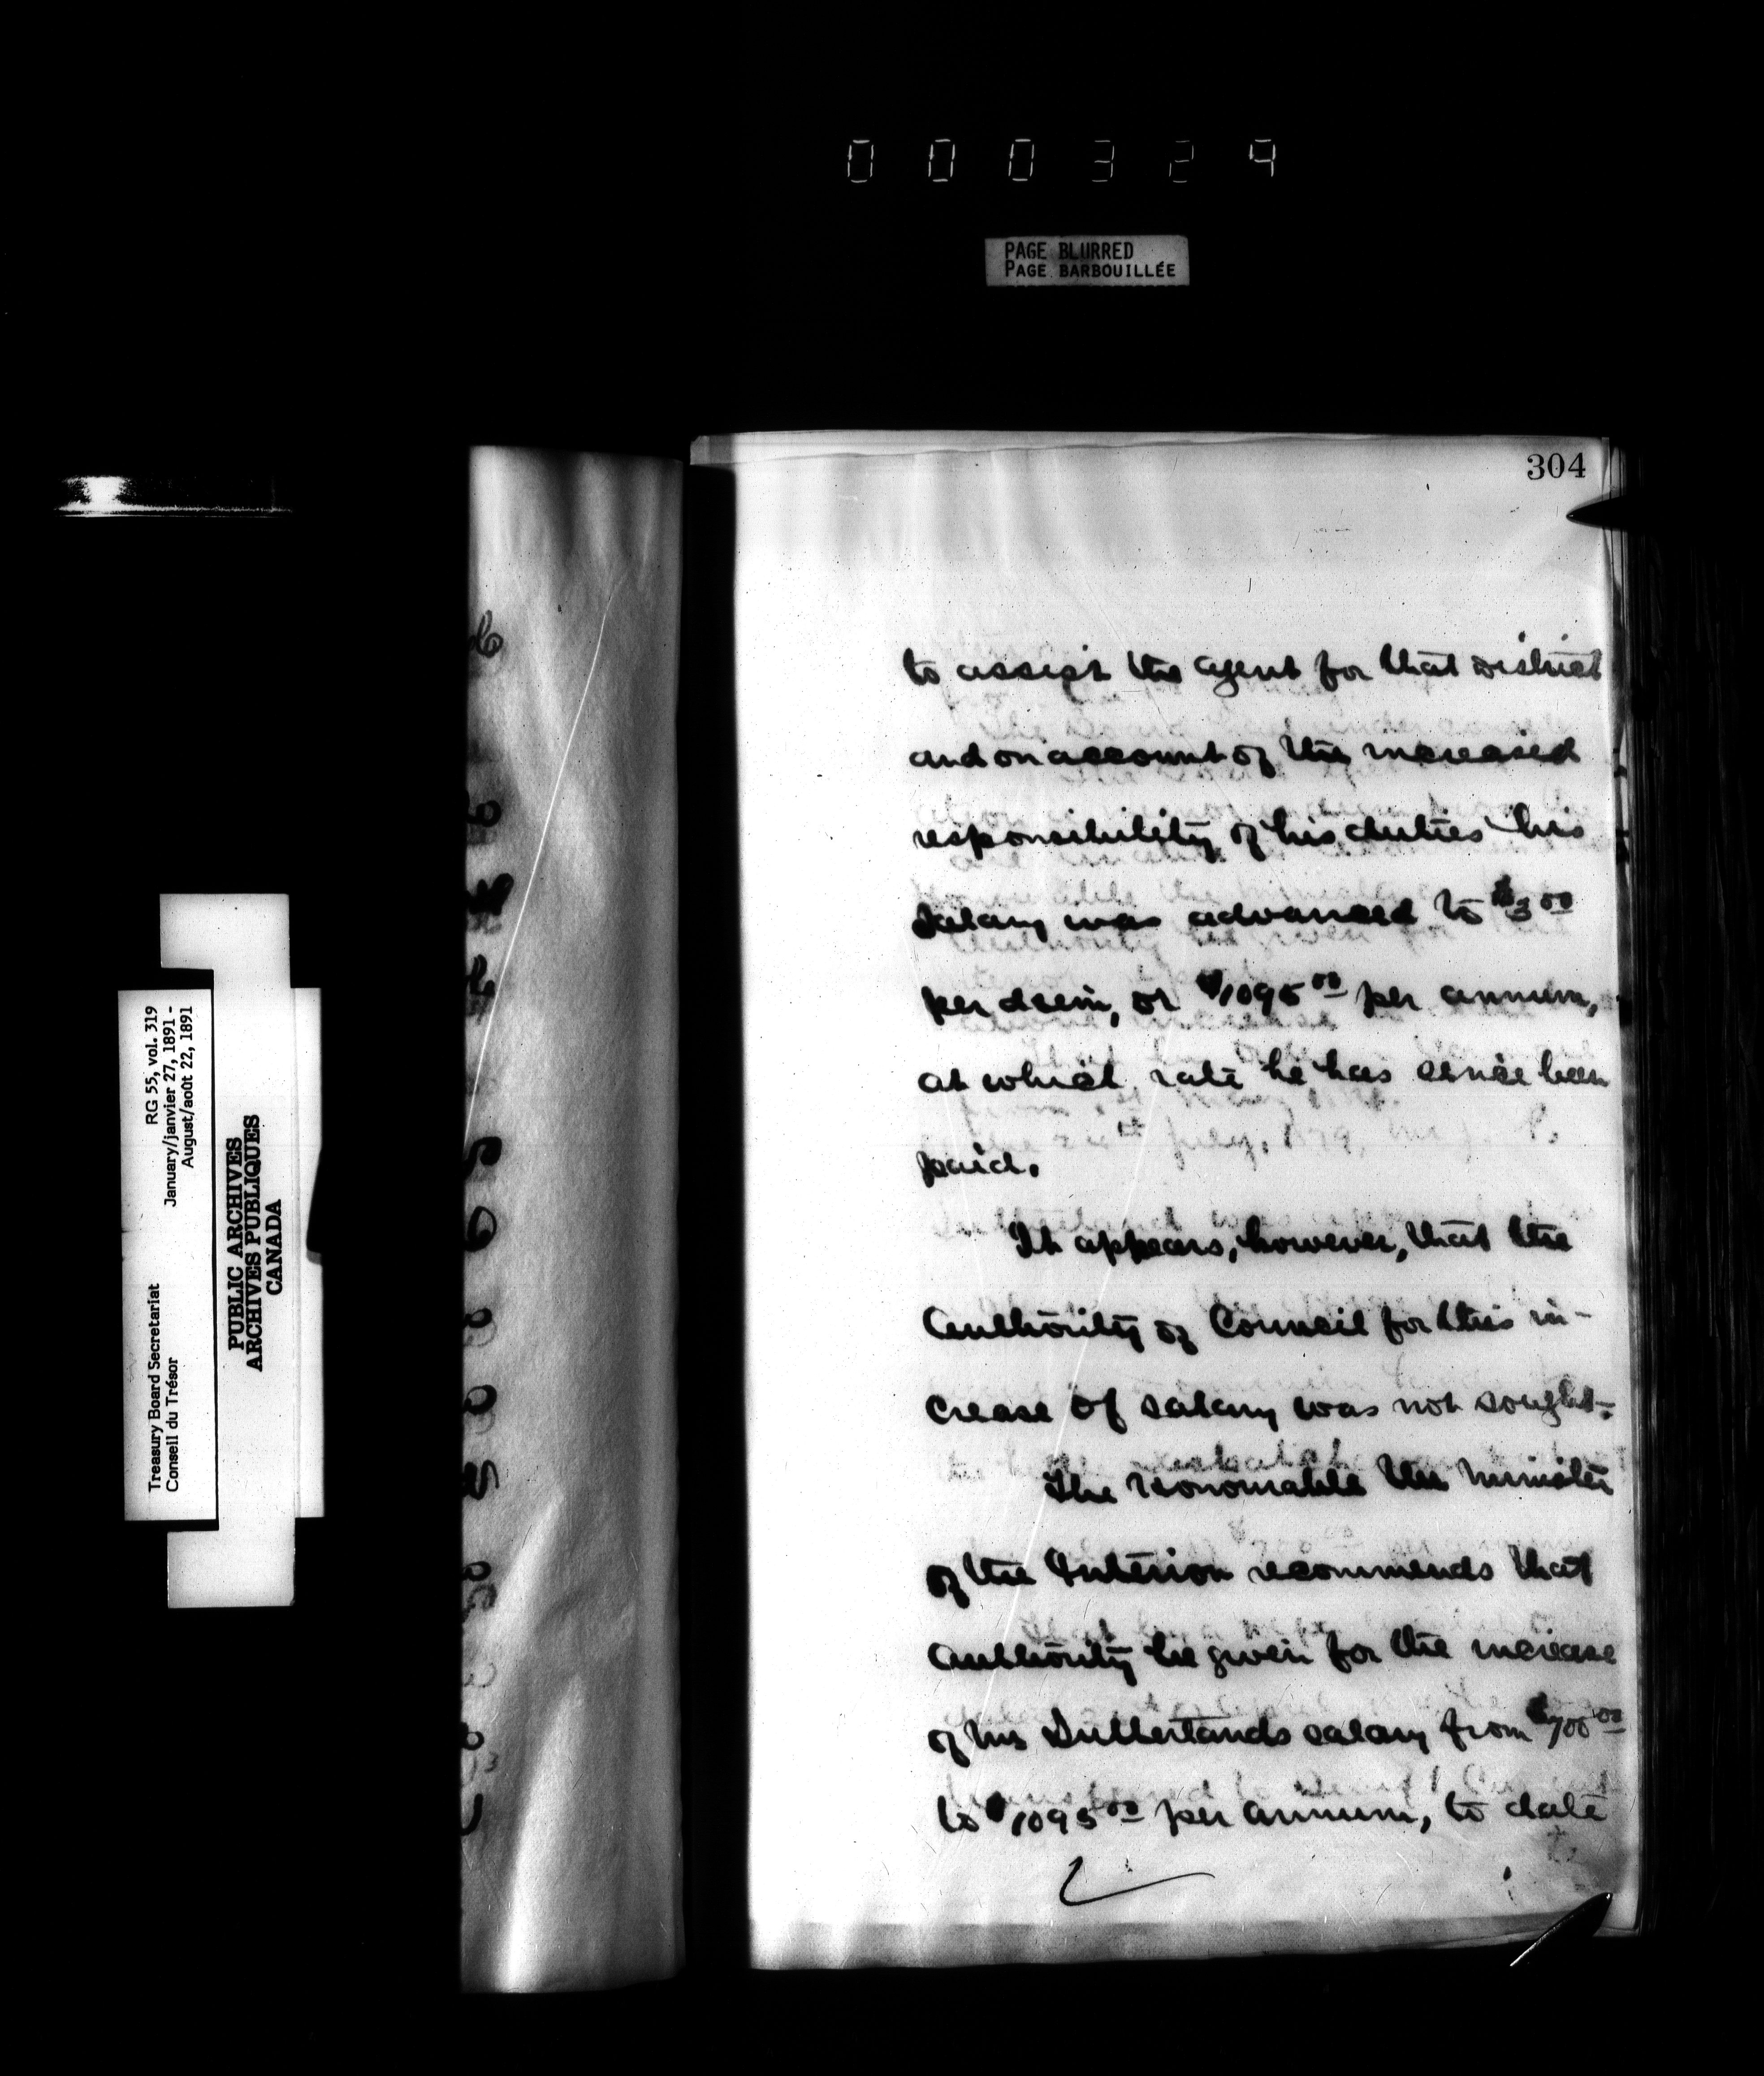 000324
PAGE BLURRED
PAGE BARBOUILLÉE
304
to assist the agent for that District
and on account of the increased
responsibility of his duties his
Salary was advanced to $3 00
per diem, or $1095 00 per annum,
at which rate he has since been
paid.
It appears, however, that the
Authority of Council for this in-
crease of salary was not sought.
The Honorable the Minister
of the Interior recommends that
Authority be given for the increase
of Mr Sutherlands salary from $700 00
to $1095 00 per annum, to date
Treasury Board Secretariat RG 55, vol. 319
Conseil du Trésor January/janvier 27, 1891 -
August/août 22, 1891
PUBLIC ARCHIVES
ARCHIVES PUBLIQUES
CANADA